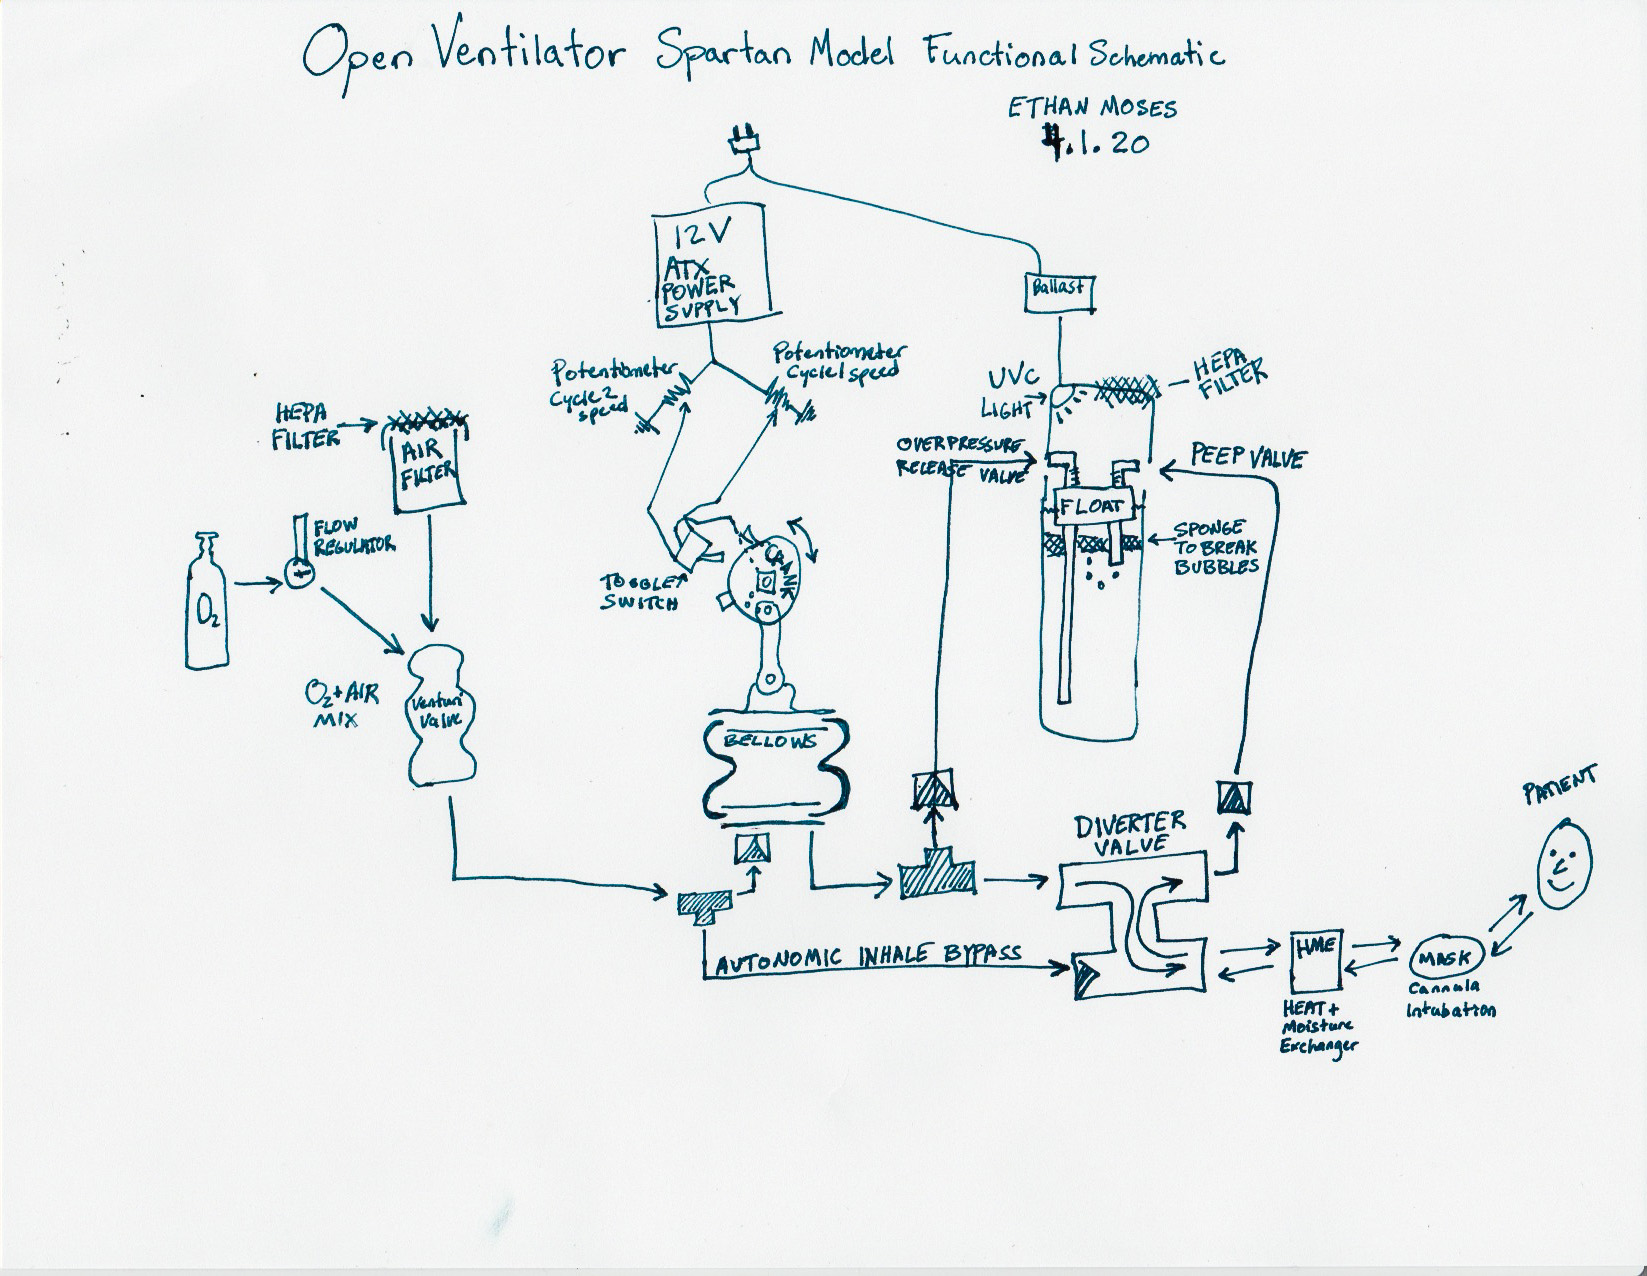 Open Ventilator Spartan Model Functional Schematic
ETHAN MOSES
4.1.20
12V
ATX
POWER
SUPPLY
Ballast
Potentiometer
Cycle 2
speed
Potentiometer
Cycle 1 speed
UVC
LIGHT
HEPA
FILTER
HEPA
FILTER
AIR
FILTER
OVERPRESSURE
RELEASE VALVE
PEEP VALVE
FLOAT
SPONGE
TO BREAK
BUBBLES
FLOW
REGULATOR
O2
TOGGLE
SWITCH
CRANK
O2+AIR
MIX
Venturi
Valve
BELLOWS
DIVERTER
VALVE
PATIENT
AUTONOMIC INHALE BYPASS
HME
HEAT +
Moisture
Exchanger
MASK
Cannula
Intubation